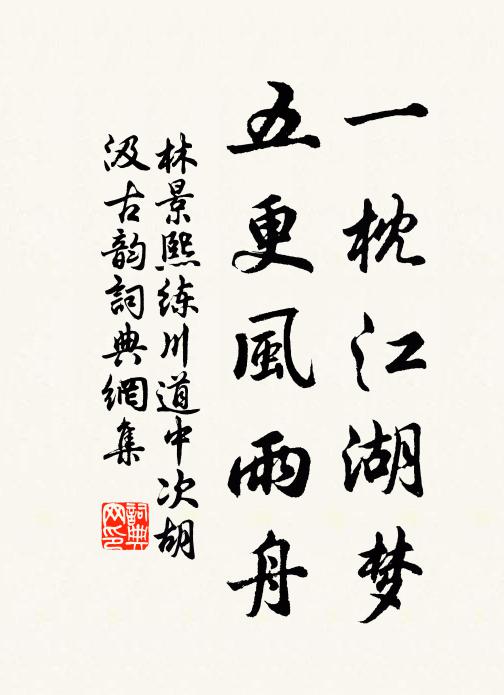 一枕江湖梦
五更風雨舟
林景熙练川道中次胡
汲古韵詞典網集
詞典網印